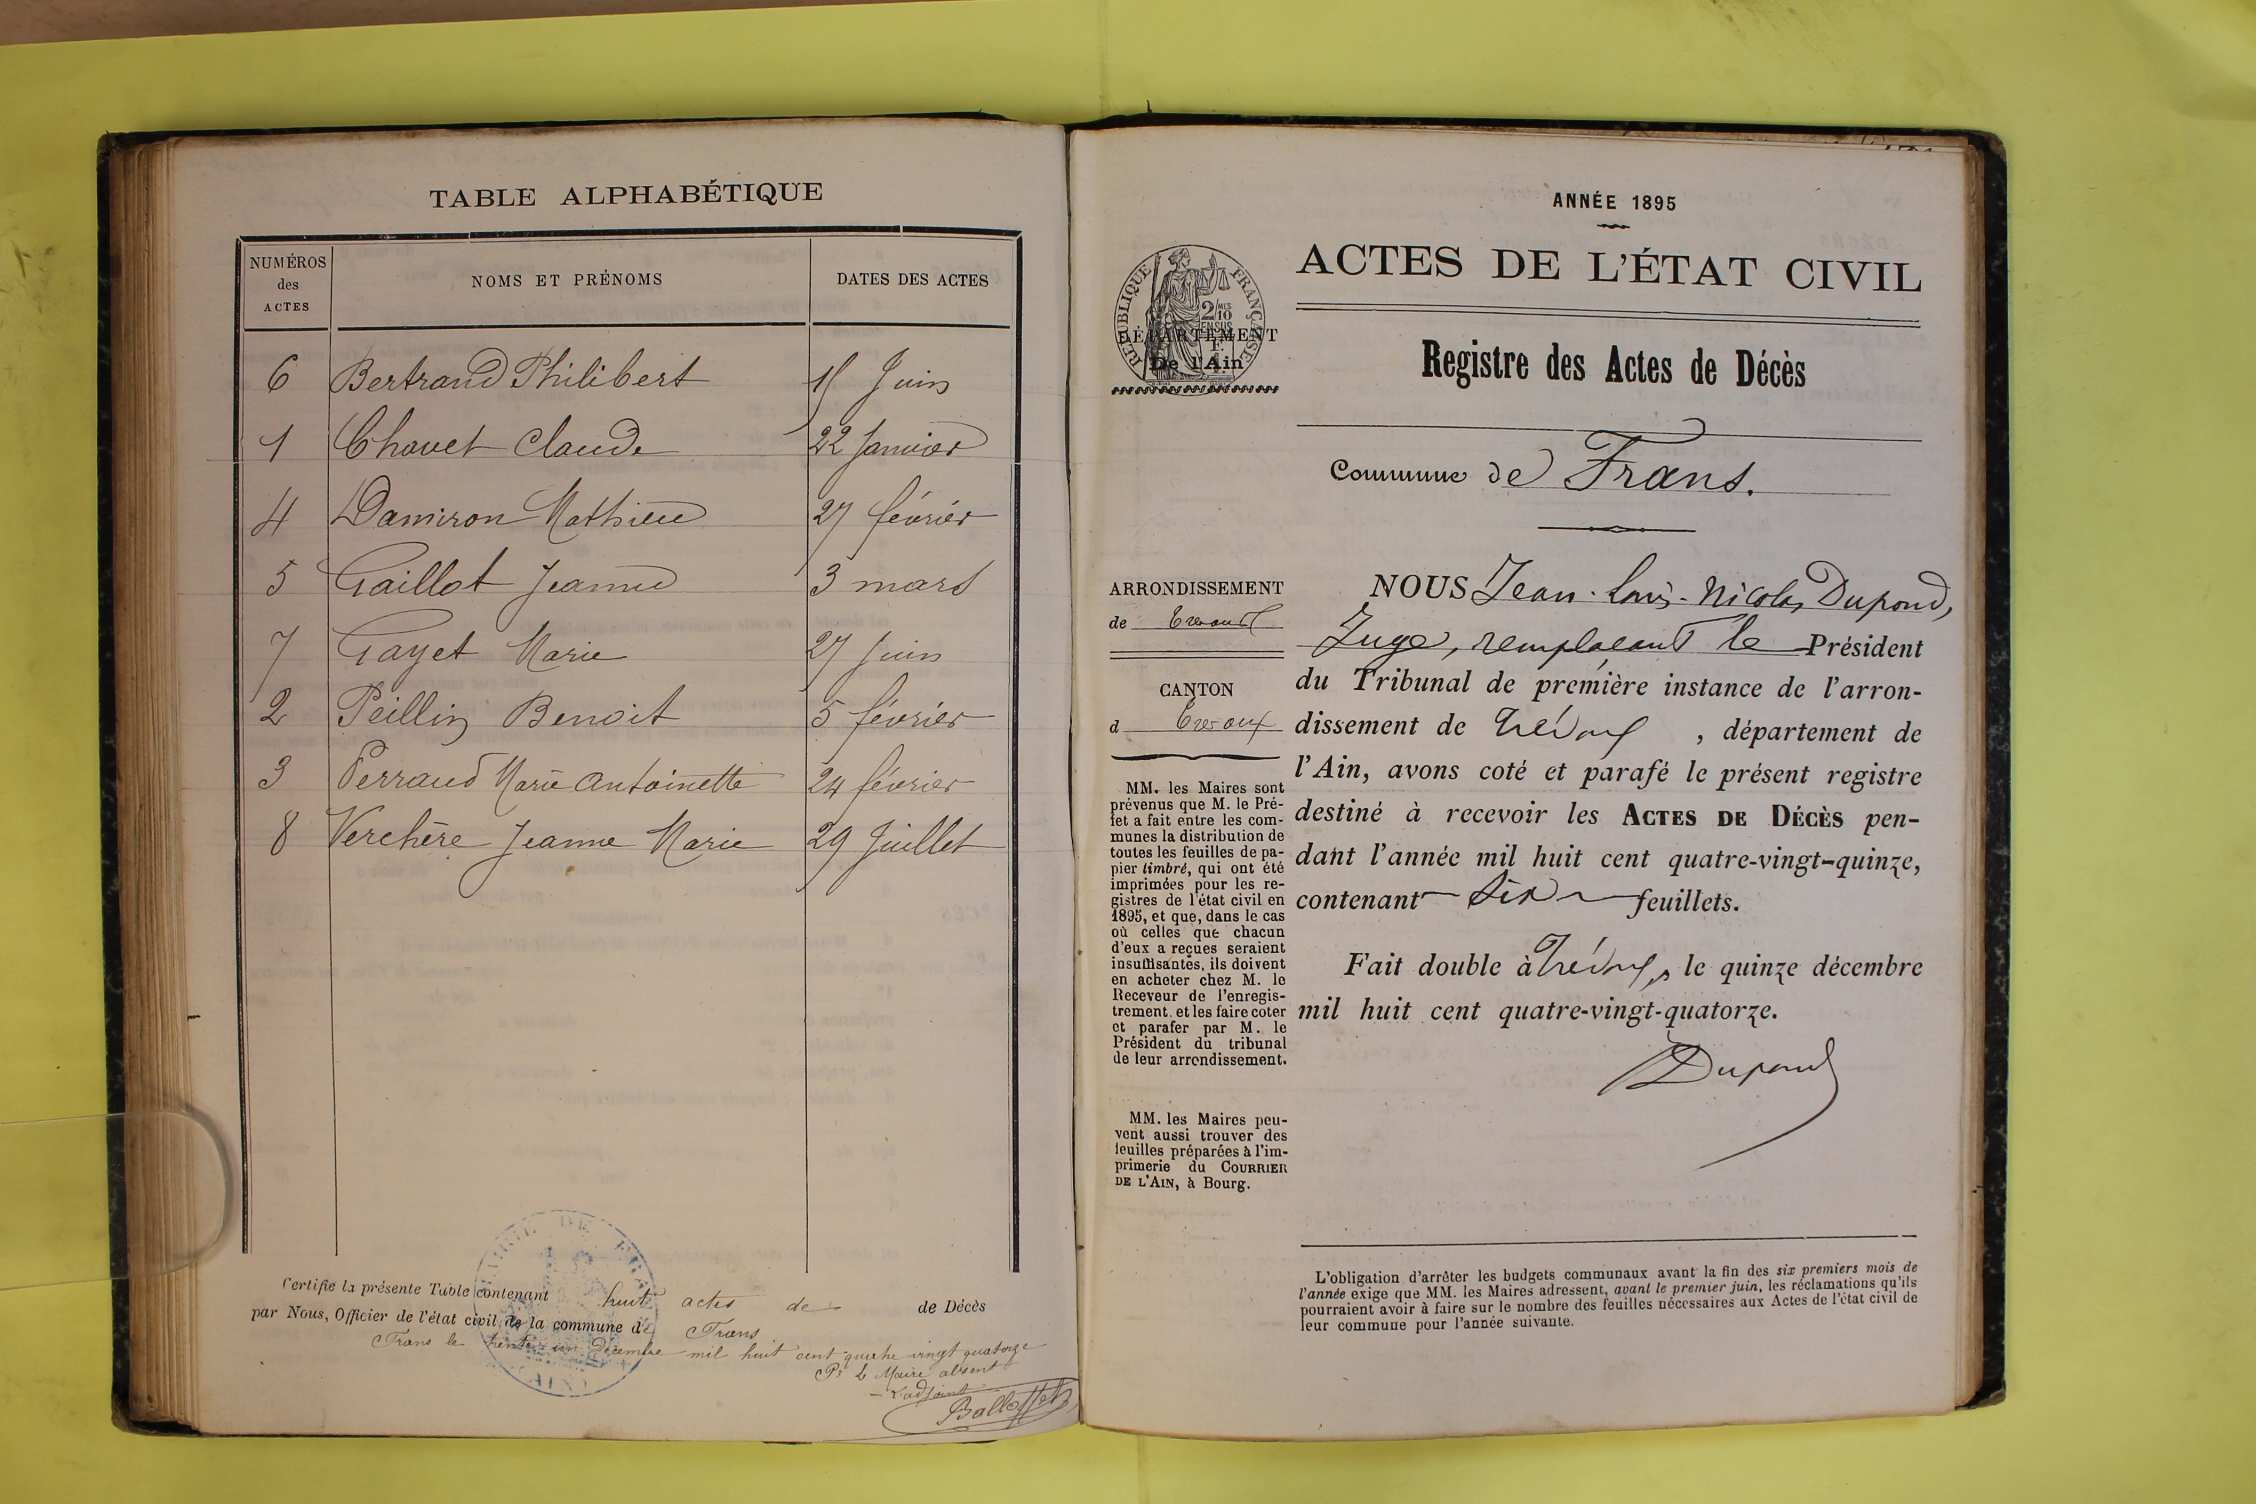 TABLE ALPHABÉTIQUE
NUMÉROS des ACTES NOMS ET PRÉNOMS DATES DES ACTES
6 Bertrand Philibert 15 Juin
1 Chavet Claude 22 Janvier
4 Damiron Mathieu 27 février
5 Gaillot Jeanne 3 mars
7 Gayet Marie 27 Juin
2 Peillin Benoit 5 février
3 Perraud Marie Antoinette 24 février
8 Verchère Jeanne Marie 29 Juillet
Certifie la présente Table contenant huit actes de de Décès
par Nous, Officier de l'état civil de la commune de Frans
Frans le trente un Décembre mil huit cent quatre vingt quatorze
Pr le Maire absent
L'adjoint
Balloffet
MAIRIE DE FRANS
(AIN)
ANNÉE 1895
ACTES DE L'ÉTAT CIVIL
RÉPUBLIQUE FRANÇAISE
2/10 MES
EN SUS
DÉPARTEMENT
De l'Ain
Registre des Actes de Décès
Commune de Frans.
ARRONDISSEMENT
de Trevoux
CANTON
d Trevoux
MM. les Maires sont
prévenus que M. le Pré-
fet a fait entre les com-
munes la distribution de
toutes les feuilles de pa-
pier timbré, qui ont été
imprimées pour les re-
gistres de l'état civil en
1895, et que, dans le cas
où celles que chacun
d'eux a reçues seraient
insuffisantes, ils doivent
en acheter chez M. le
Receveur de l'enregis-
trement et les faire coter
et parafer par M. le
Président du tribunal
de leur arrondissement.
MM. les Maires peu-
vent aussi trouver des
feuilles préparées à l'im-
primerie du COURRIER
DE L'AIN, à Bourg.
NOUS Jean-Louis-Nicolas Dupond,
Juge, remplaçant le Président
du Tribunal de première instance de l'arron-
dissement de Trévoux, département de
l'Ain, avons coté et parafé le présent registre
destiné à recevoir les ACTES DE DÉCÈS pen-
dant l'année mil huit cent quatre-vingt-quinze,
contenant six feuillets.
Fait double à Trévoux, le quinze décembre
mil huit cent quatre-vingt-quatorze.
Dupond
L'obligation d'arrêter les budgets communaux avant la fin des six premiers mois de
l'année exige que MM. les Maires adressent, avant le premier juin, les réclamations qu'ils
pourraient avoir à faire sur le nombre des feuilles nécessaires aux Actes de l'état civil de
leur commune pour l'année suivante.